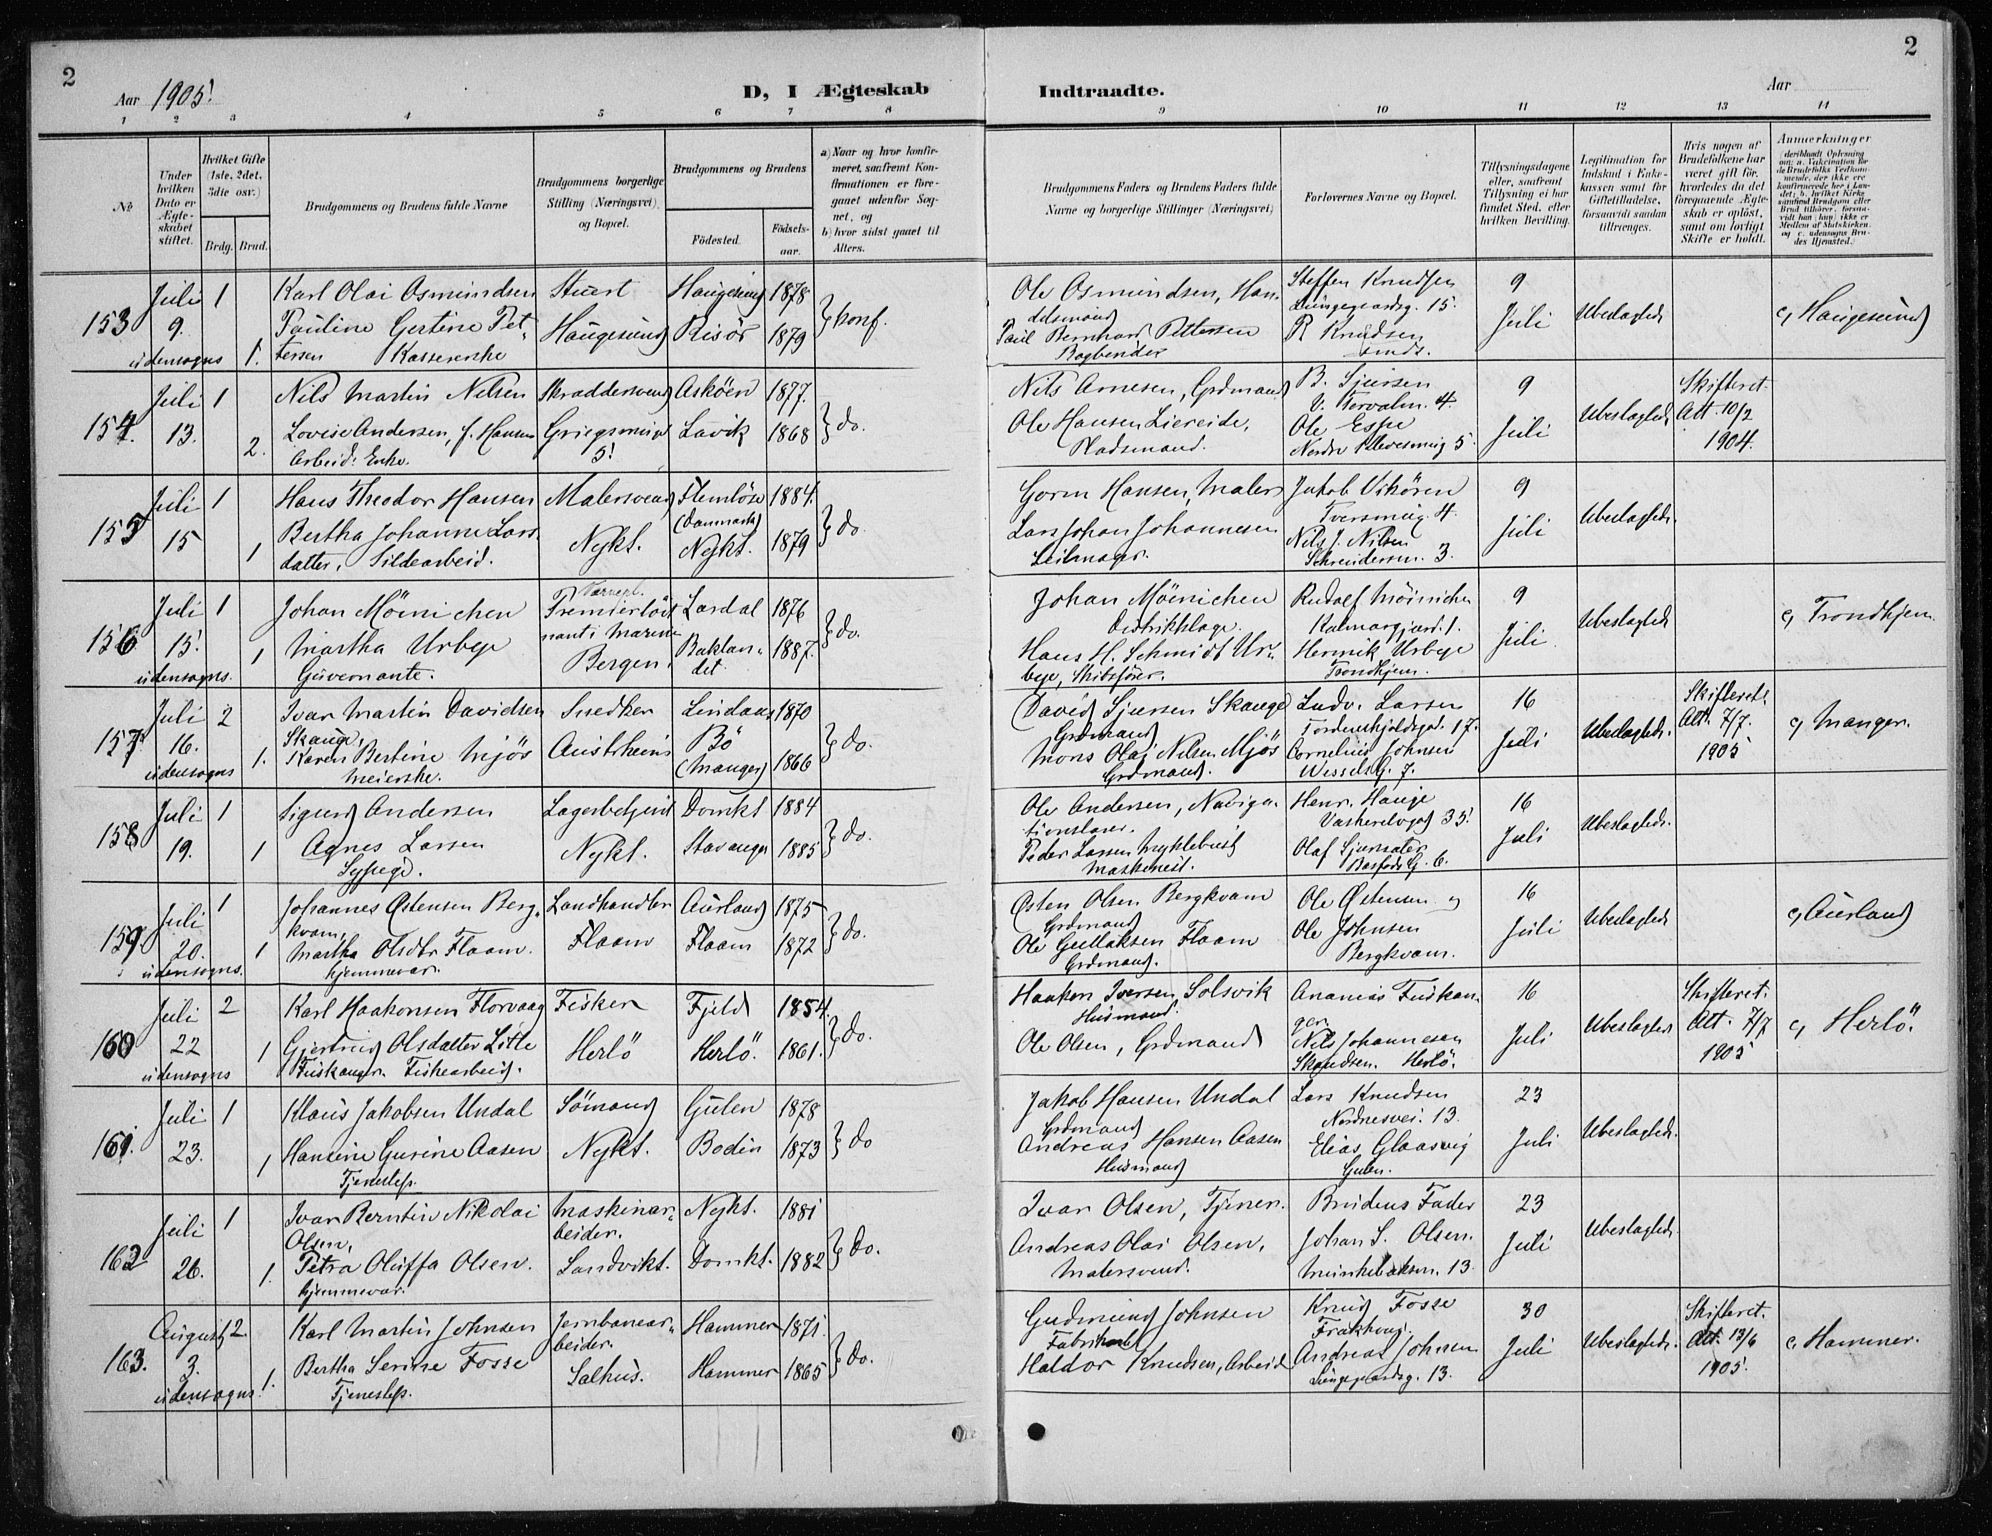 2
Aar 1905.
D, I Ægteskab
Indtraadte.
Aar
2
1 2 3 4 5 6 7 8 9 10 11 12 13 14
No
Under hvilken Dato er Ægteskabet stiftet.
Hvilket Gifte (1ste, 2det, 3die osv.)
Brdg. Brud.
Brudgommens og Brudens fulde Navne
Brudgommens borgerlige Stilling (Næringsvei) og Bopæl.
Brudgommens og Brudens
Födested. Födselsaar.
a) Naar og hvor konfirmeret, saafremt Konfirmationen er foregaaet udenfor Sognet, og
b) hvor sidst gaaet til Alters.
Brudgommens Faders og Brudens Faders fulde Navne og borgerlige Stillinger (Næringsvei)
Forlovernes Navne og Bopæl.
Tillysningsdagene eller, saafremt Tillysning ei har fundet Sted, efter hvilken Bevilling.
Legitimation for Indskud i Enkekassen samt for Giftetilladelse, forsaavidt saadan tiltrænges.
Hvis nogen af Brudefolkene har været gift før, hvorledes da det foregaaende Ægteskab er oplöst, samt om lovligt Skifte er holdt.
Anmærkninger
153 Juli 9. udensogns 1 1.
Karl Olai Osmundsen
Pauline Gertine Pettersen Kassererske
Stuert Haugesund
Haugesund 1878
Risör 1879
konf.
Ole Osmundsen, Handelsmand
Paul Bernhard Pettersen Bogbinder
Steffen Knudsen
Lungegaardsg. 15.
R Knudsen
9 Juli
Ubeslagtede
c, Haugesund
154. Juli 13. 1 2.
Nils Martin Nilsen
Lovise Andersen, f. Hansen
Arbeid. Enke.
Skræddersvend
5.
Asköen 1877.
Lavik 1868
do.
Nils Arnesen, Grdmand
Ole Hansen Liereide,
Pladsmand.
B. Sjursen
4.
Ole Espe
5.
9 Juli
Ubeslagtede
Skifteret.
Att. 10/2
1904.
155 Juli 15 1 1
Hans Theodor Hansen
Bertha Johanne Larsdatter, Sildearbeid.
Malersvend
Nykt.
Flemlöse (Danmark) 1884.
Nykt. 1879
do.
Gorm Hansen, Maler
Lars Johan Johannesen
Seilmager.
Jakob Vikören
4.
Nils J. Nilsen
3.
9 Juli
Ubeslagtede.
156 Juli 15. udensogns. 1 1
Johan Möinichen
Martha Urbye
Guvernante.
Premierlöitnant i Marine
Bergen.
Lardal 1876
Baklandet 1887.
do.
Johan Möinichen
Hans H. Schmidt Urbye, Skibsförer.
Rudolf Möinichen
1.
Henrik Urbye
Trondhjem.
9 Juli.
Ubeslagtede
c, Trondhjem
157 Juli 16. udensogns 2 1.
Ivar Martin Davidsen
Skauge,
Karen Bertine Mjös
Meierske.
Snedker
Austrheim
Lindaas 1870
Bö (Manger) 1866
do.
David Sjursen Skauge
Grdmand
Mons Olai Nilsen Mjös
Grdmand.
Ludv. Larsen
Tordenskjoldsgd. 17.
Cornelius Johnsen
Wessels G. 7.
16 Juli
Ubeslagtede.
Skifteret.
Att. 7/7.
1905
c, Manger.
158 Juli 19. 1 1
Sigurd Andersen
Agnes Larsen
Sypige.
Lagerbetjent
Nykt.
Domkt 1884
Stavanger 1885
do.
Ole Andersen, Navigationslærer.
Peder Larsen Myklebust
Maskinist.
Henr. Hauge
35.
Olaf
6.
16 Juli
Ubeslagtede.
159 Juli 20. udensogns. 1 1
Johannes Östensen Bergkvam,
Martha Olsdtr Flaam.
hjemmevær.
Landhandler
Flaam
Aurland 1875
Flaam 1872
do.
Östen Olsen Bergkvam
Grdmand
Ole Gullaksen Flaam
Grdmand.
Ole Östensen og
Ole Johnsen
Bergkvam.
16 Juli
Ubeslagtede
c, Aurland
160 Juli 22 udensogns 2 1
Karl Haakonsen Florvaag
Gjertrud Olsdatter Litle
Fuskanger. Fiskearbeid.
Fisker
Herlö
Fjeld 1854.
Herlö. 1861.
do.
Haakon Iversen Solsvik
Husmand.
Ole Olsen, Grdmand
Ananias Fuskanger,
Nils Johannesen
Herlö.
16 Juli
Ubeslagtede
Skifteret.
Att. 7/7
1905
c, Herlö.
161. Juli 23. 1 1
Klaus Jakobsen Undal
Hansine Gurine Aasen
Tjenestep.
Sömand
Nykt.
Gulen 1878
Bodin 1873
do
Jakob Hansen Undal
Grdmand
Andreas Hansen Aasen
Husmand
Lars Knudsen
Nordnesvei. 13.
Elias Glaasvig
Gulen.
23 Juli
Ubeslagtede.
162 Juli 26. 1 1.
Ivar Berntin Nikolai
Olsen,
Petra Oluffa Olsen.
hjemmevær.
Maskinarbeider.
Sandvikt.
Nykt. 1881
Domkt. 1882
do.
Ivar Olsen, Tjener.
Andreas Olai Olsen,
Malersvend.
Brudens Fader
Johan S. Olsen.
13.
23 Juli
Ubeslagtede
163. August 3. udensogns 2 1.
Karl Martin Johnsen
Bertha Serine Fosse
Tjenestep.
Jernbanearbeider.
Salhus.
Hammer 1871.
Hammer 1865
do.
Gudmund Johnsen
Haldor Knudsen, Arbeid
Knud Fosse
Andreas Johnsen
Lungegaardsg. 13.
30 Juli
Ubeslagtede.
Skifteret.
Att. 13/6
1905.
c, Hammer.